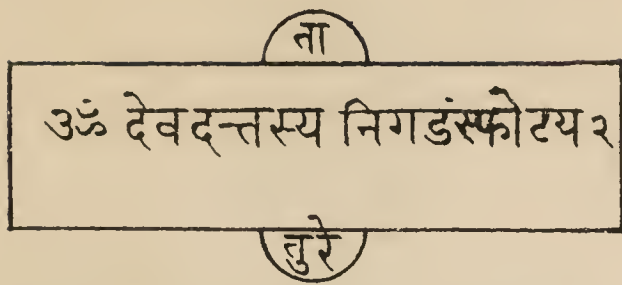 ता
ॐ देवदन्तस्य निगडंस्फोटय २
तुरे